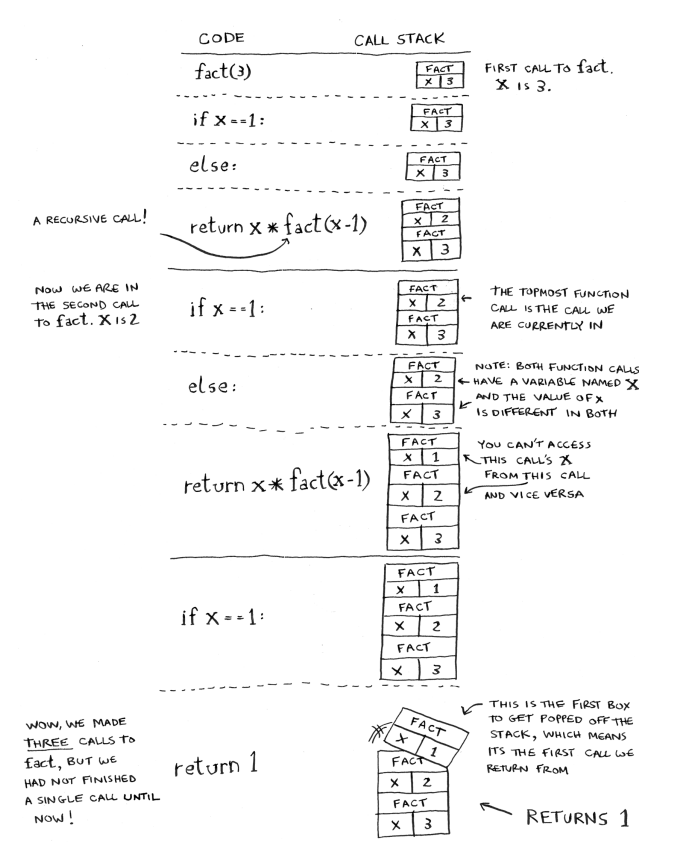 CODE CALL STACK
fact(3)
FACT
X 3
FIRST CALL TO fact.
X IS 3.
if x==1:
FACT
X 3
else:
FACT
X 3
A RECURSIVE CALL!
return x * fact(x-1)
FACT
X 2
FACT
X 3
NOW WE ARE IN
THE SECOND CALL
to fact. X IS 2
if x==1:
FACT
X 2
FACT
X 3
THE TOPMOST FUNCTION
CALL IS THE CALL WE
ARE CURRENTLY IN
else:
FACT
X 2
FACT
X 3
NOTE: BOTH FUNCTION CALLS
HAVE A VARIABLE NAMED X
AND THE VALUE OF X
IS DIFFERENT IN BOTH
return x * fact(x-1)
FACT
X 1
FACT
X 2
FACT
X 3
YOU CAN'T ACCESS
THIS CALL'S X
FROM THIS CALL
AND VICE VERSA
if x==1:
FACT
X 1
FACT
X 2
FACT
X 3
WOW, WE MADE
THREE CALLS TO
fact, BUT WE
HAD NOT FINISHED
A SINGLE CALL UNTIL
NOW!
return 1
FACT
X 1
FACT
X 2
FACT
X 3
THIS IS THE FIRST BOX
TO GET POPPED OFF THE
STACK, WHICH MEANS
ITS THE FIRST CALL WE
RETURN FROM
RETURNS 1